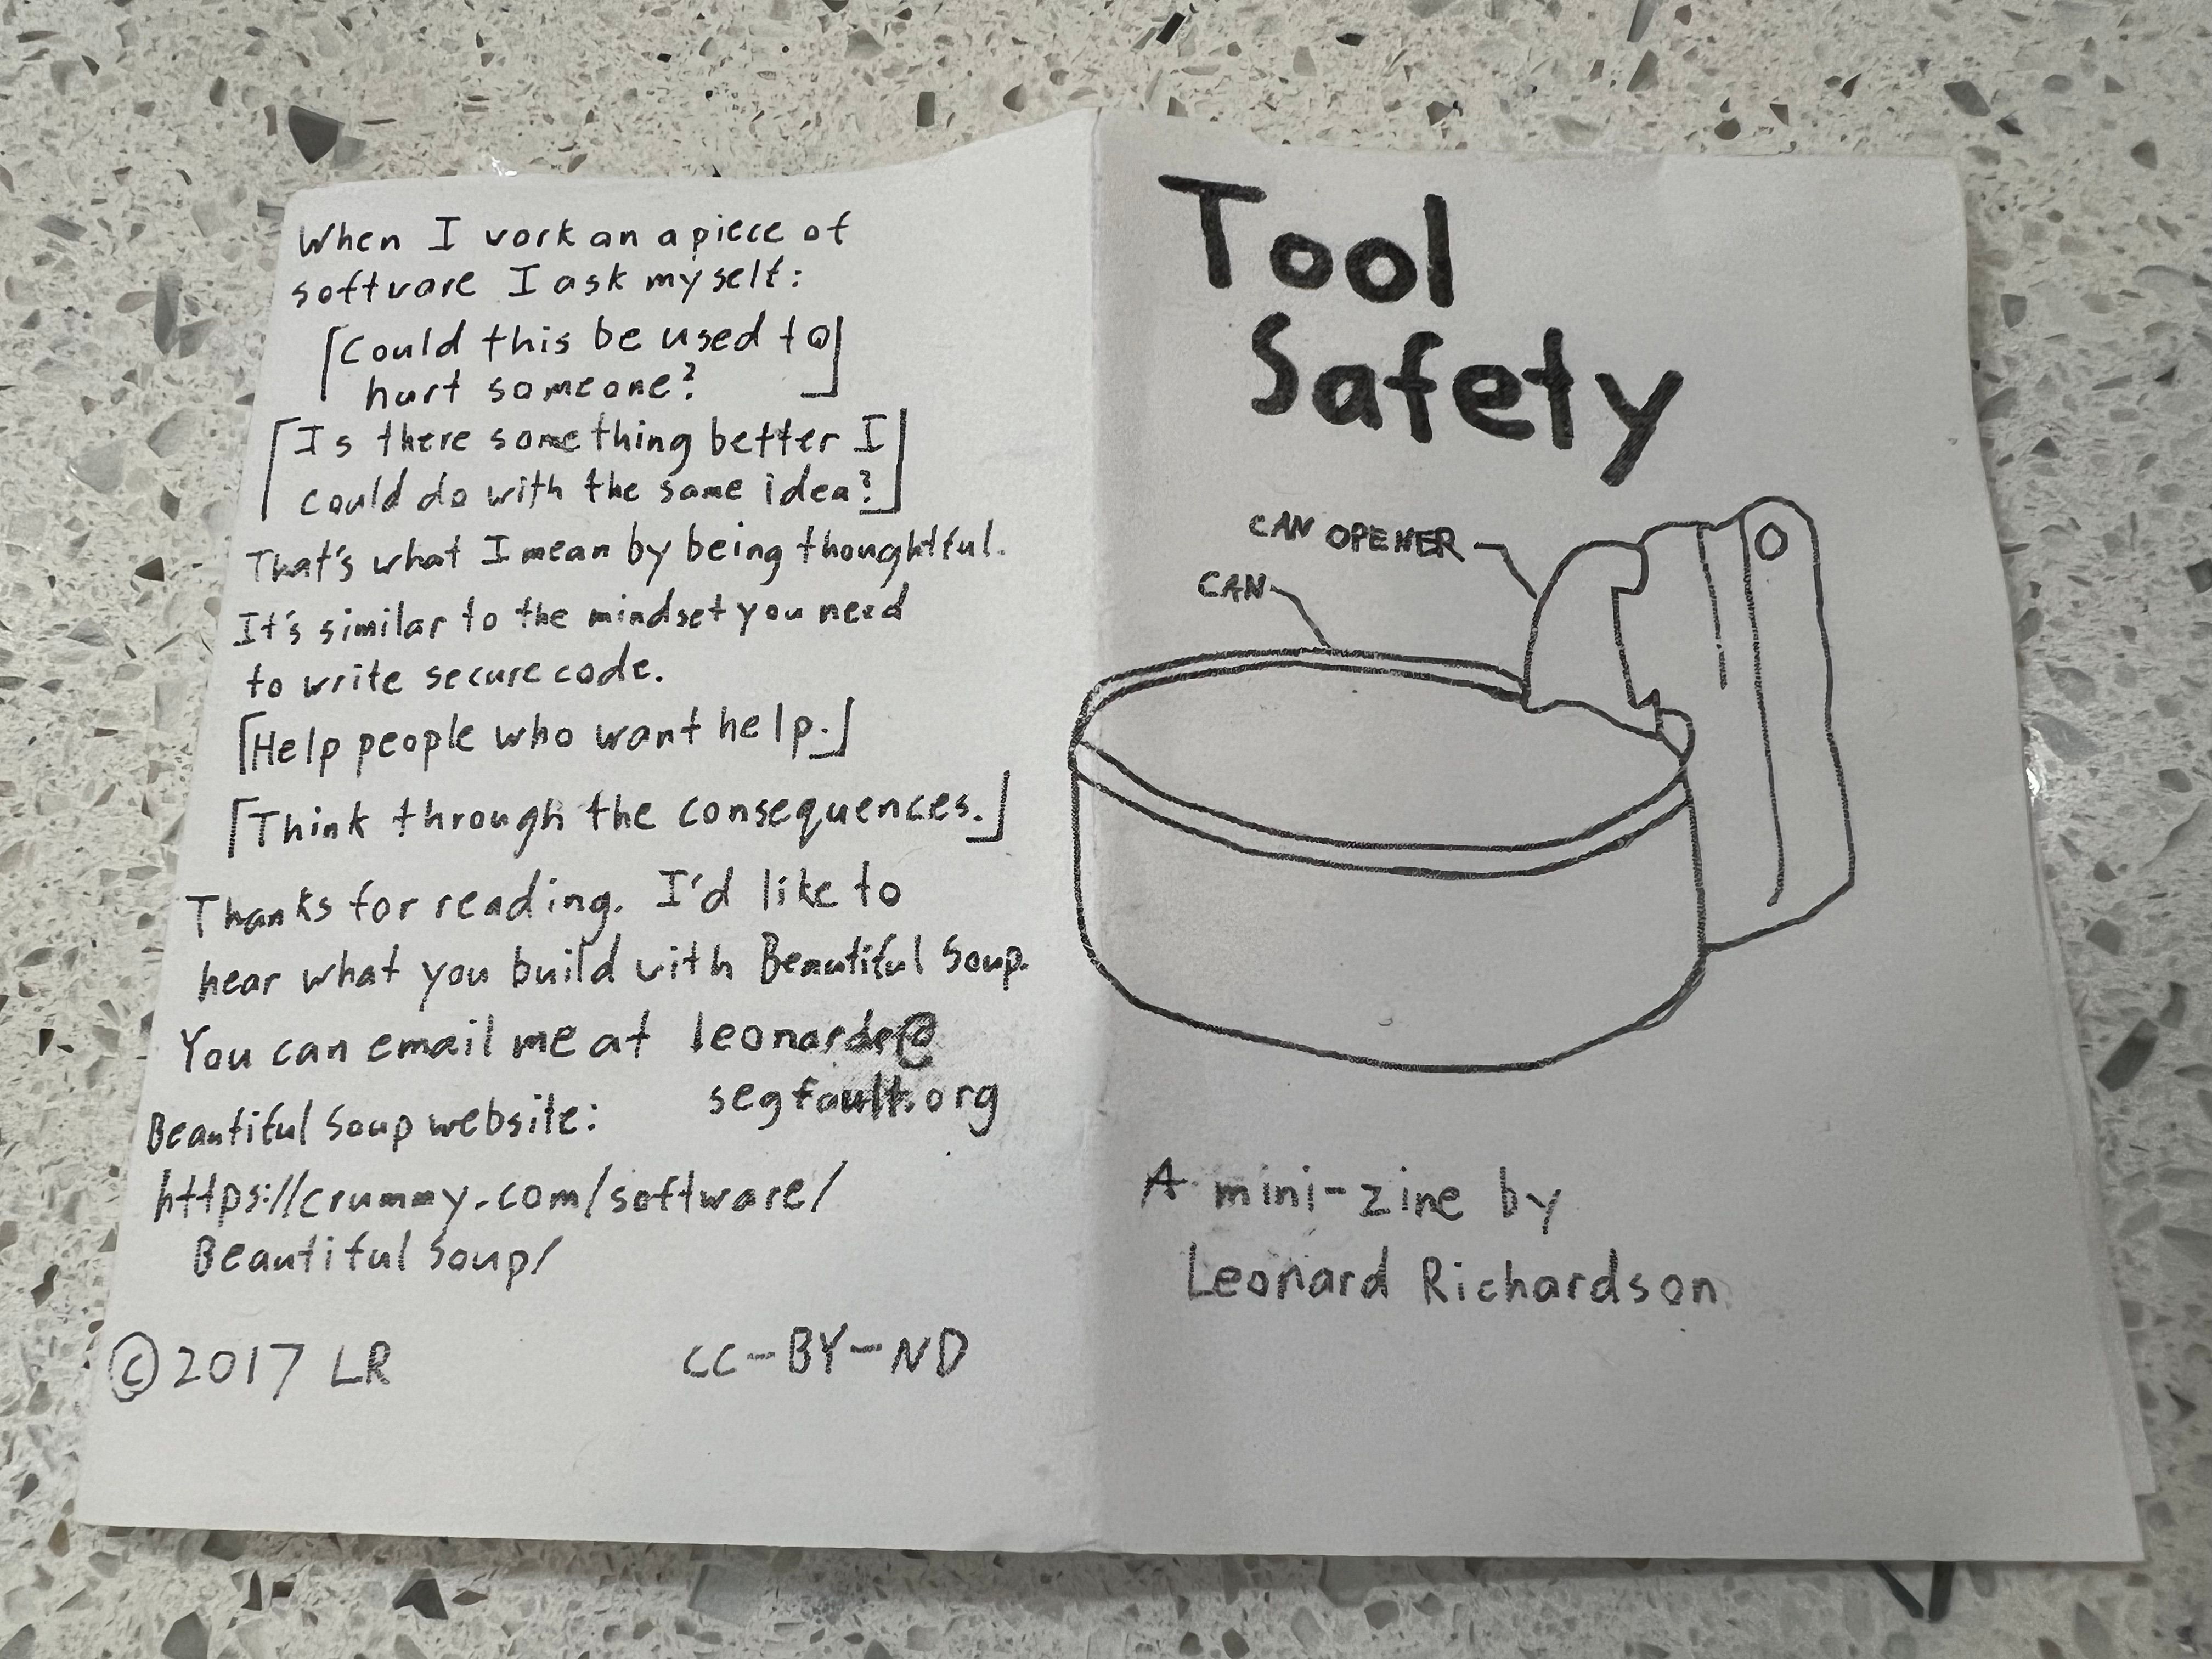 When I work on a piece of
software I ask myself:
Could this be used to
hurt someone?
Is there something better I
could do with the same idea?
That's what I mean by being thoughtful.
It's similar to the mindset you need
to write secure code.
Help people who want help.
Think through the consequences.
Thanks for reading. I'd like to
hear what you build with Beautiful Soup.
You can email me at leonardr@
segfault.org
Beautiful Soup website:
https://crummy.com/software/
BeautifulSoup/
© 2017 LR CC-BY-ND
Tool
Safety
CAN OPENER
CAN
A mini-zine by
Leonard Richardson